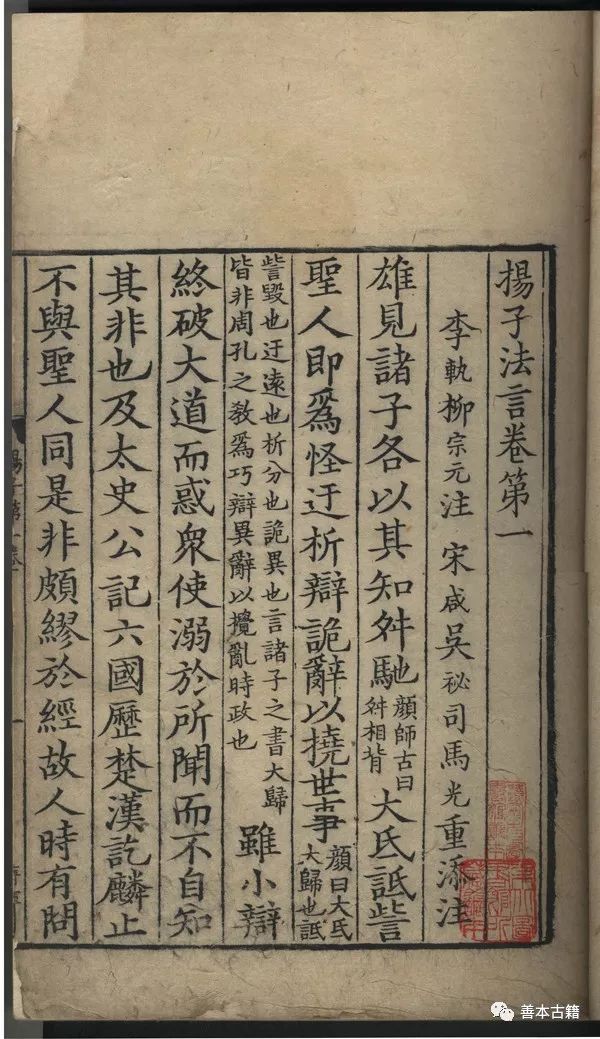 揚子法言卷第一
李軌柳宗元注 宋咸吳祕司馬光重添注
雄見諸子各以其知舛馳顔師古曰舛相背大氐詆訾
聖人即爲怪迂析辯詭辭以撓世事顔曰大氐大歸也詆
訾毀也迂遠也析分也詭異也言諸子之書大歸皆非周孔之教爲巧辯異辭以攪亂時政也雖小辯
終破大道而惑衆使溺於所聞而不自知
其非也及太史公記六國歷楚漢訖麟止
不與聖人同是非頗繆於經故人時有問
善本古籍